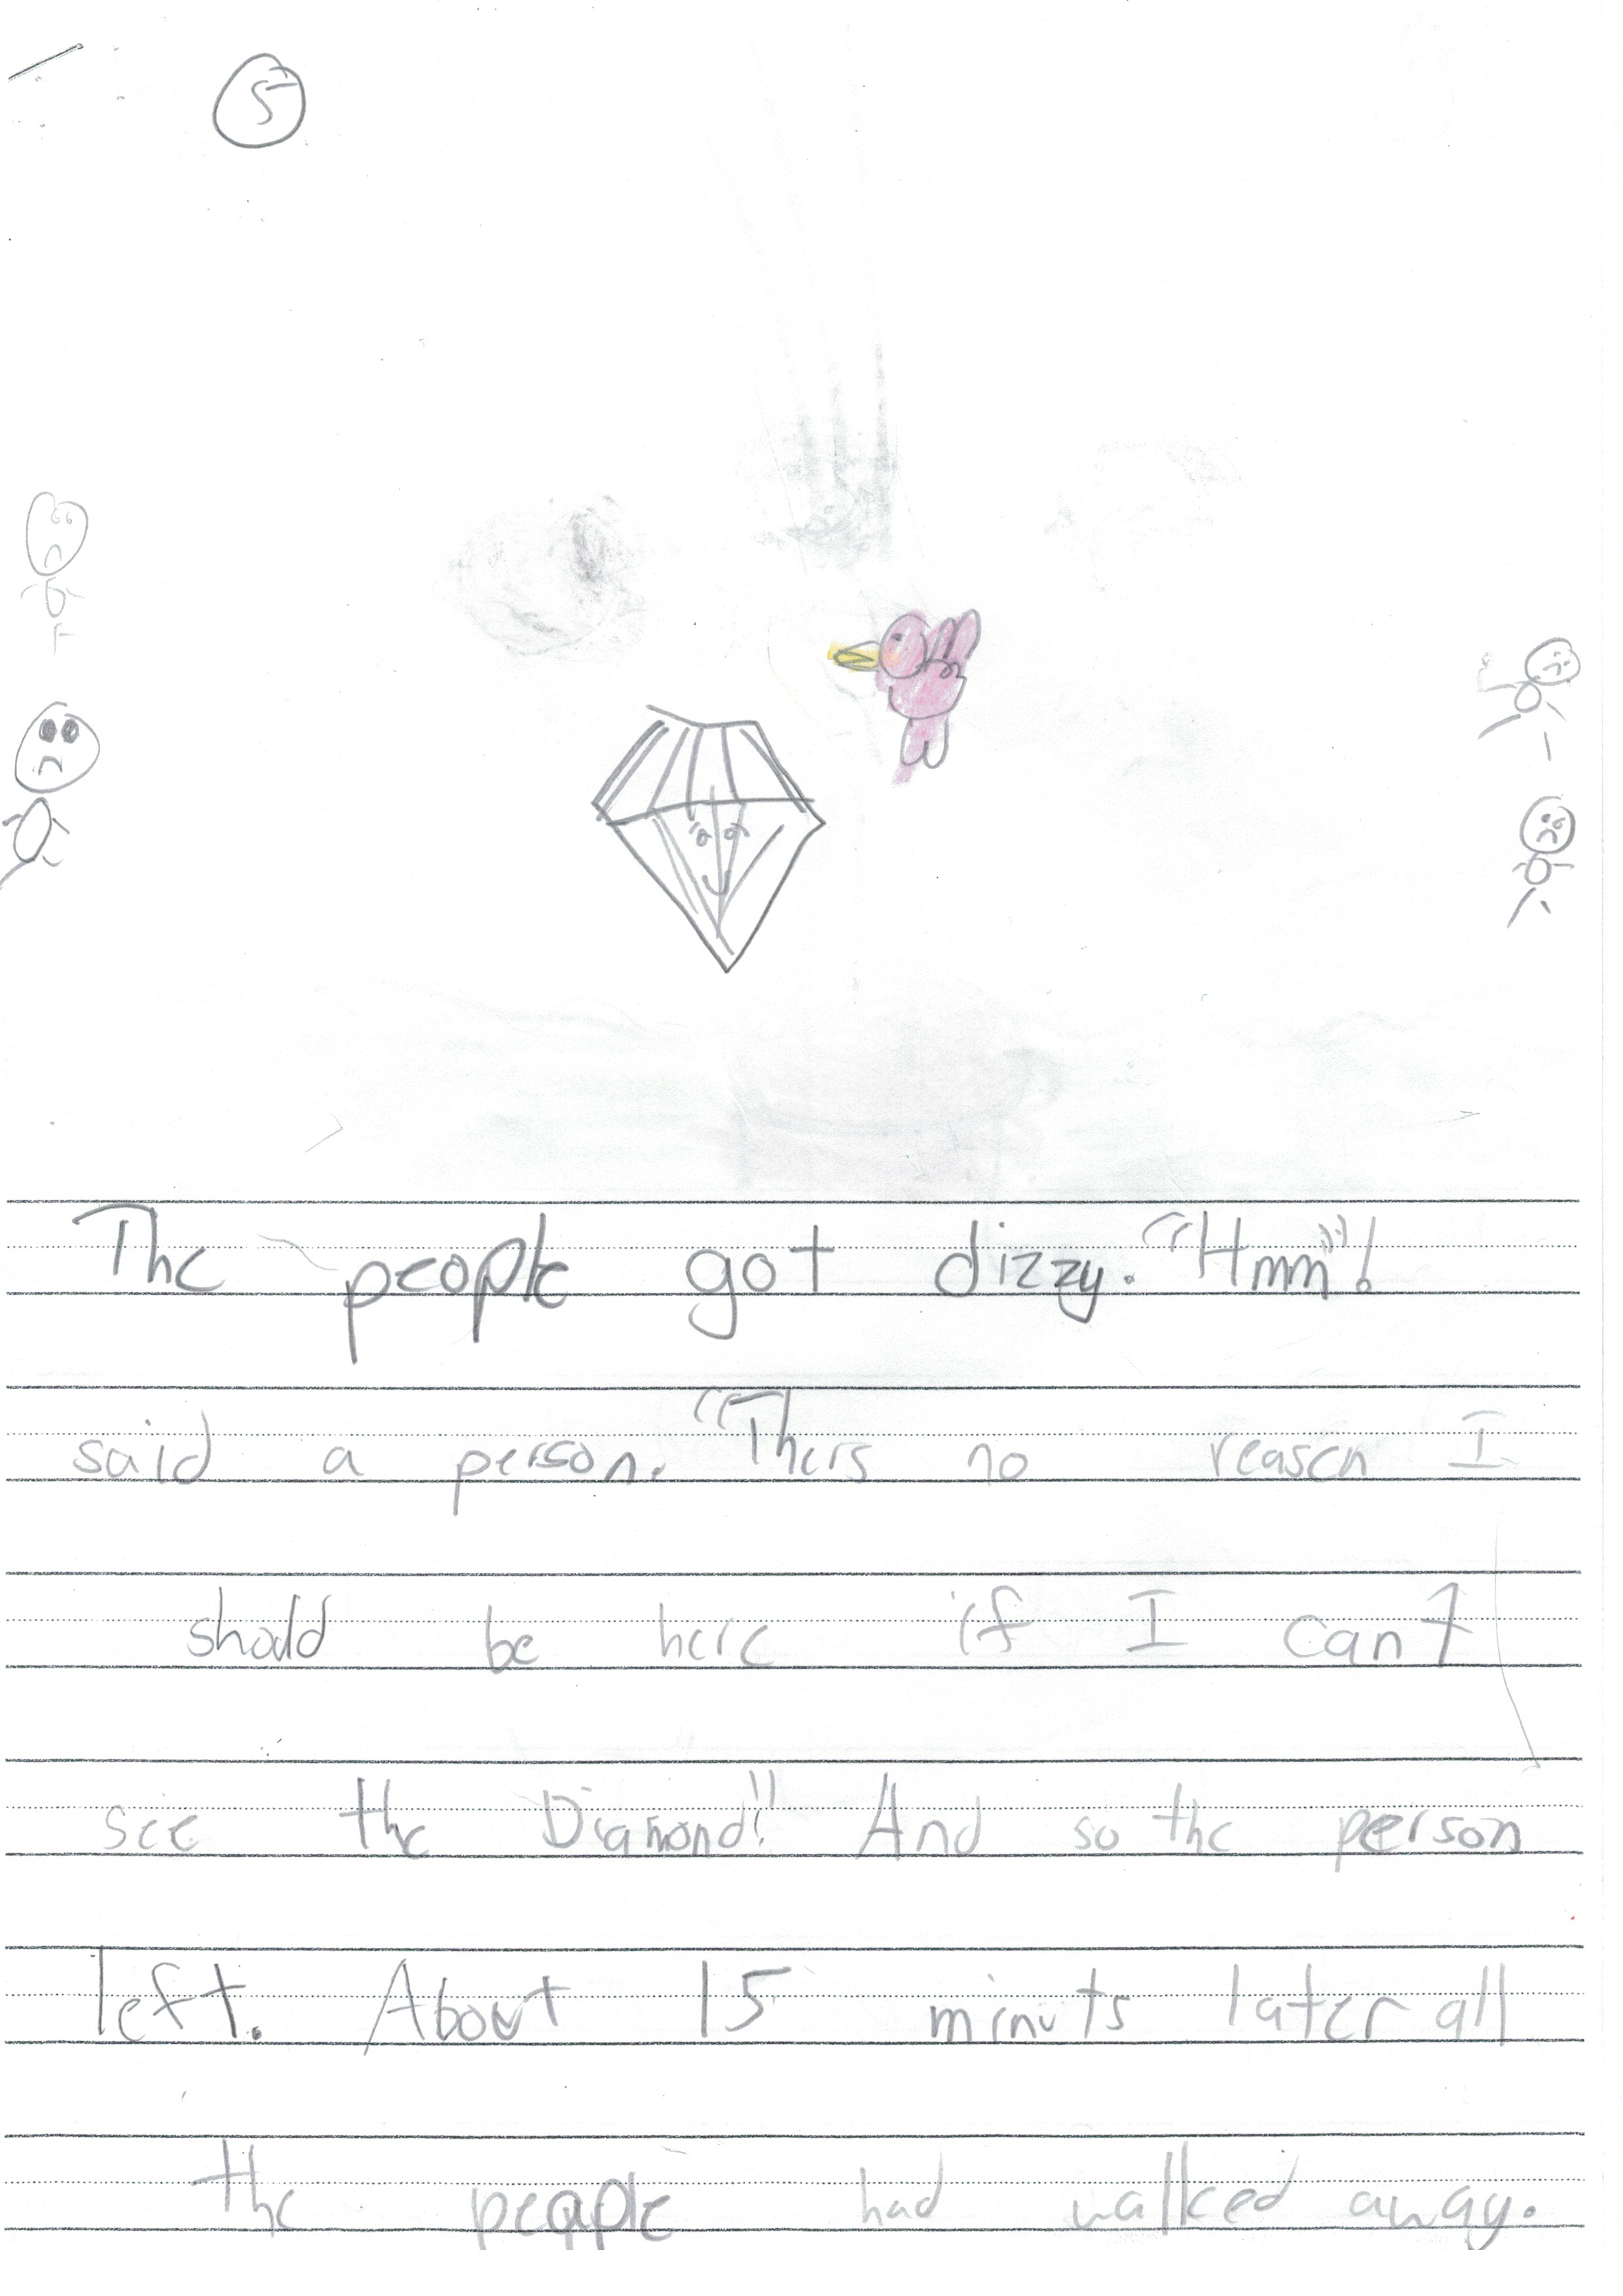 5
The people got dizzy. "Hmm"!
said a person. "Thers no reason I
should be here if I can't
see the Diamond!" And so the person
left. About 15 minuts later all
the people had walked away.